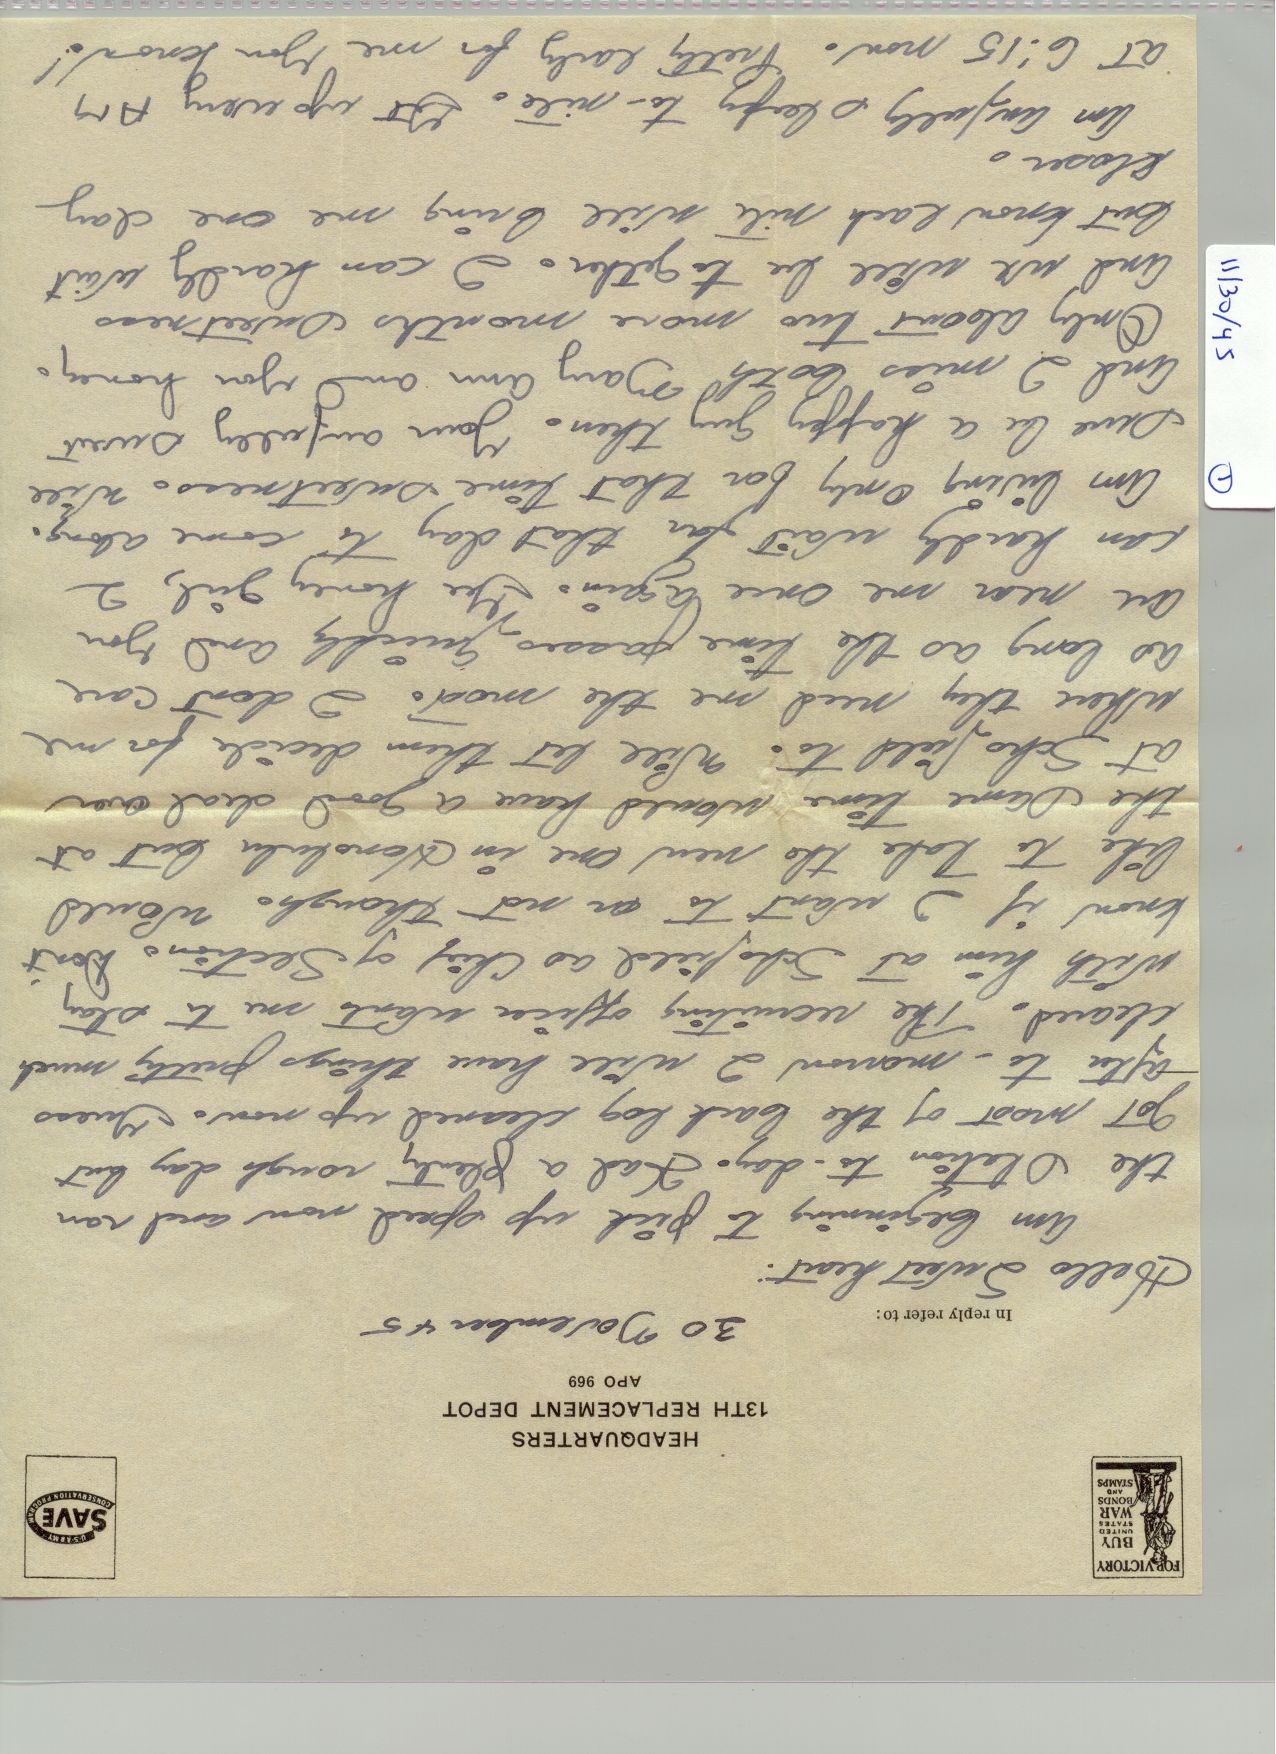 FOR VICTORY
BUY
UNITED
STATES
WAR
BONDS
AND
STAMPS
U.S. ARMY
SAVE
CONSERVATION PROGRAM
HEADQUARTERS
13TH REPLACEMENT DEPOT
APO 969
In reply refer to:
30 November 45
Hello Sweetheart:
Am beginning to pick up speed now and ran
the Station to-day. Had a plenty rough day but
got most of the back log cleaned up now. Guess
after to-morrow I will have things pretty much
cleared. The recruiting officer wants me to stay
with him at Schofield as Chief of Section. Don't
know if I want to or not though. Would
like to take the new one in Honolulu but at
the same time would have a good deal over
at Schofield to. Will let them decide for me
where they need me the most. I don't care
as long as the time passes quickly and you
are near me once again. Gee honey girl, I
can hardly wait for that day to come along.
Am living only for that time sweetness. Will
sure be a happy guy then. Your awfully sweet
and I miss both Mary Ann and you honey.
Only about two more months sweetness
and we will be together. I can hardly wait
but know each nite will bring me one day
closer.
Am awfully sleepy to-nite. Get up every AM
at 6:15 now. Pretty early for me you know!
11/30/45
1